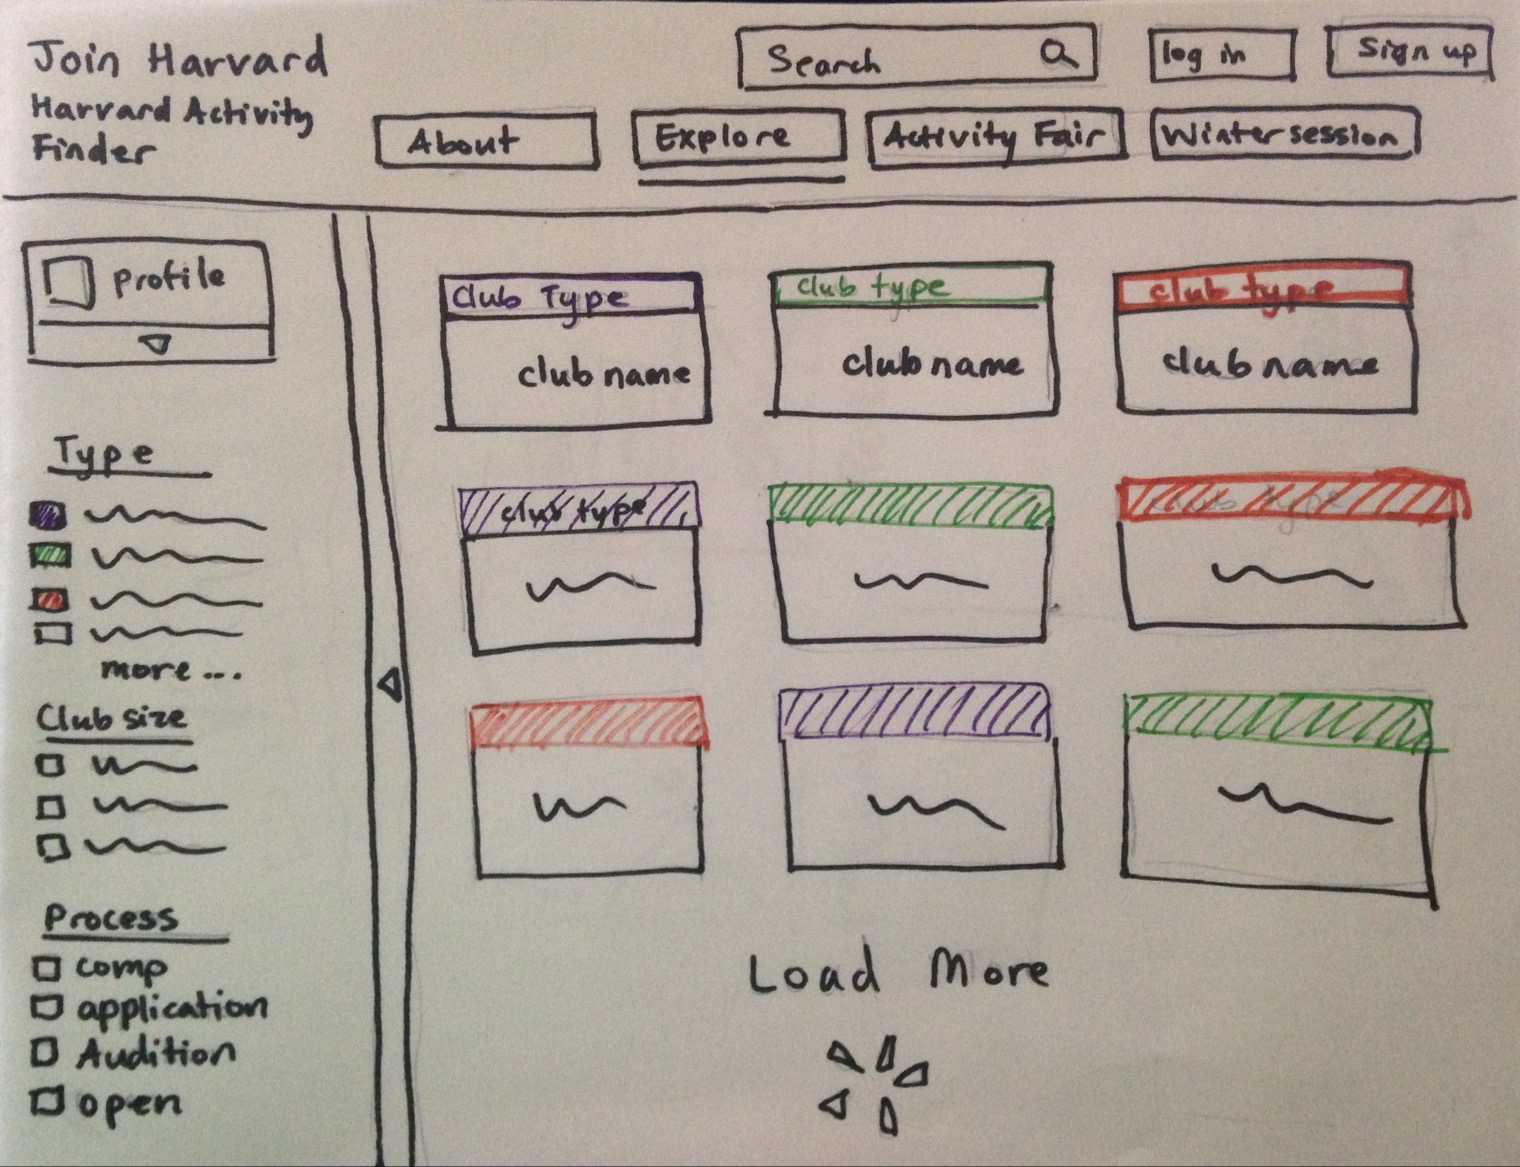 Join Harvard
Harvard Activity
Finder
Search
log in
Sign up
About
Explore
Activity Fair
Wintersession
Profile
Type
more ...
Club size
Process
comp
application
Audition
open
Club Type
club name
club type
club name
club type
club name
club type
club type
Load More